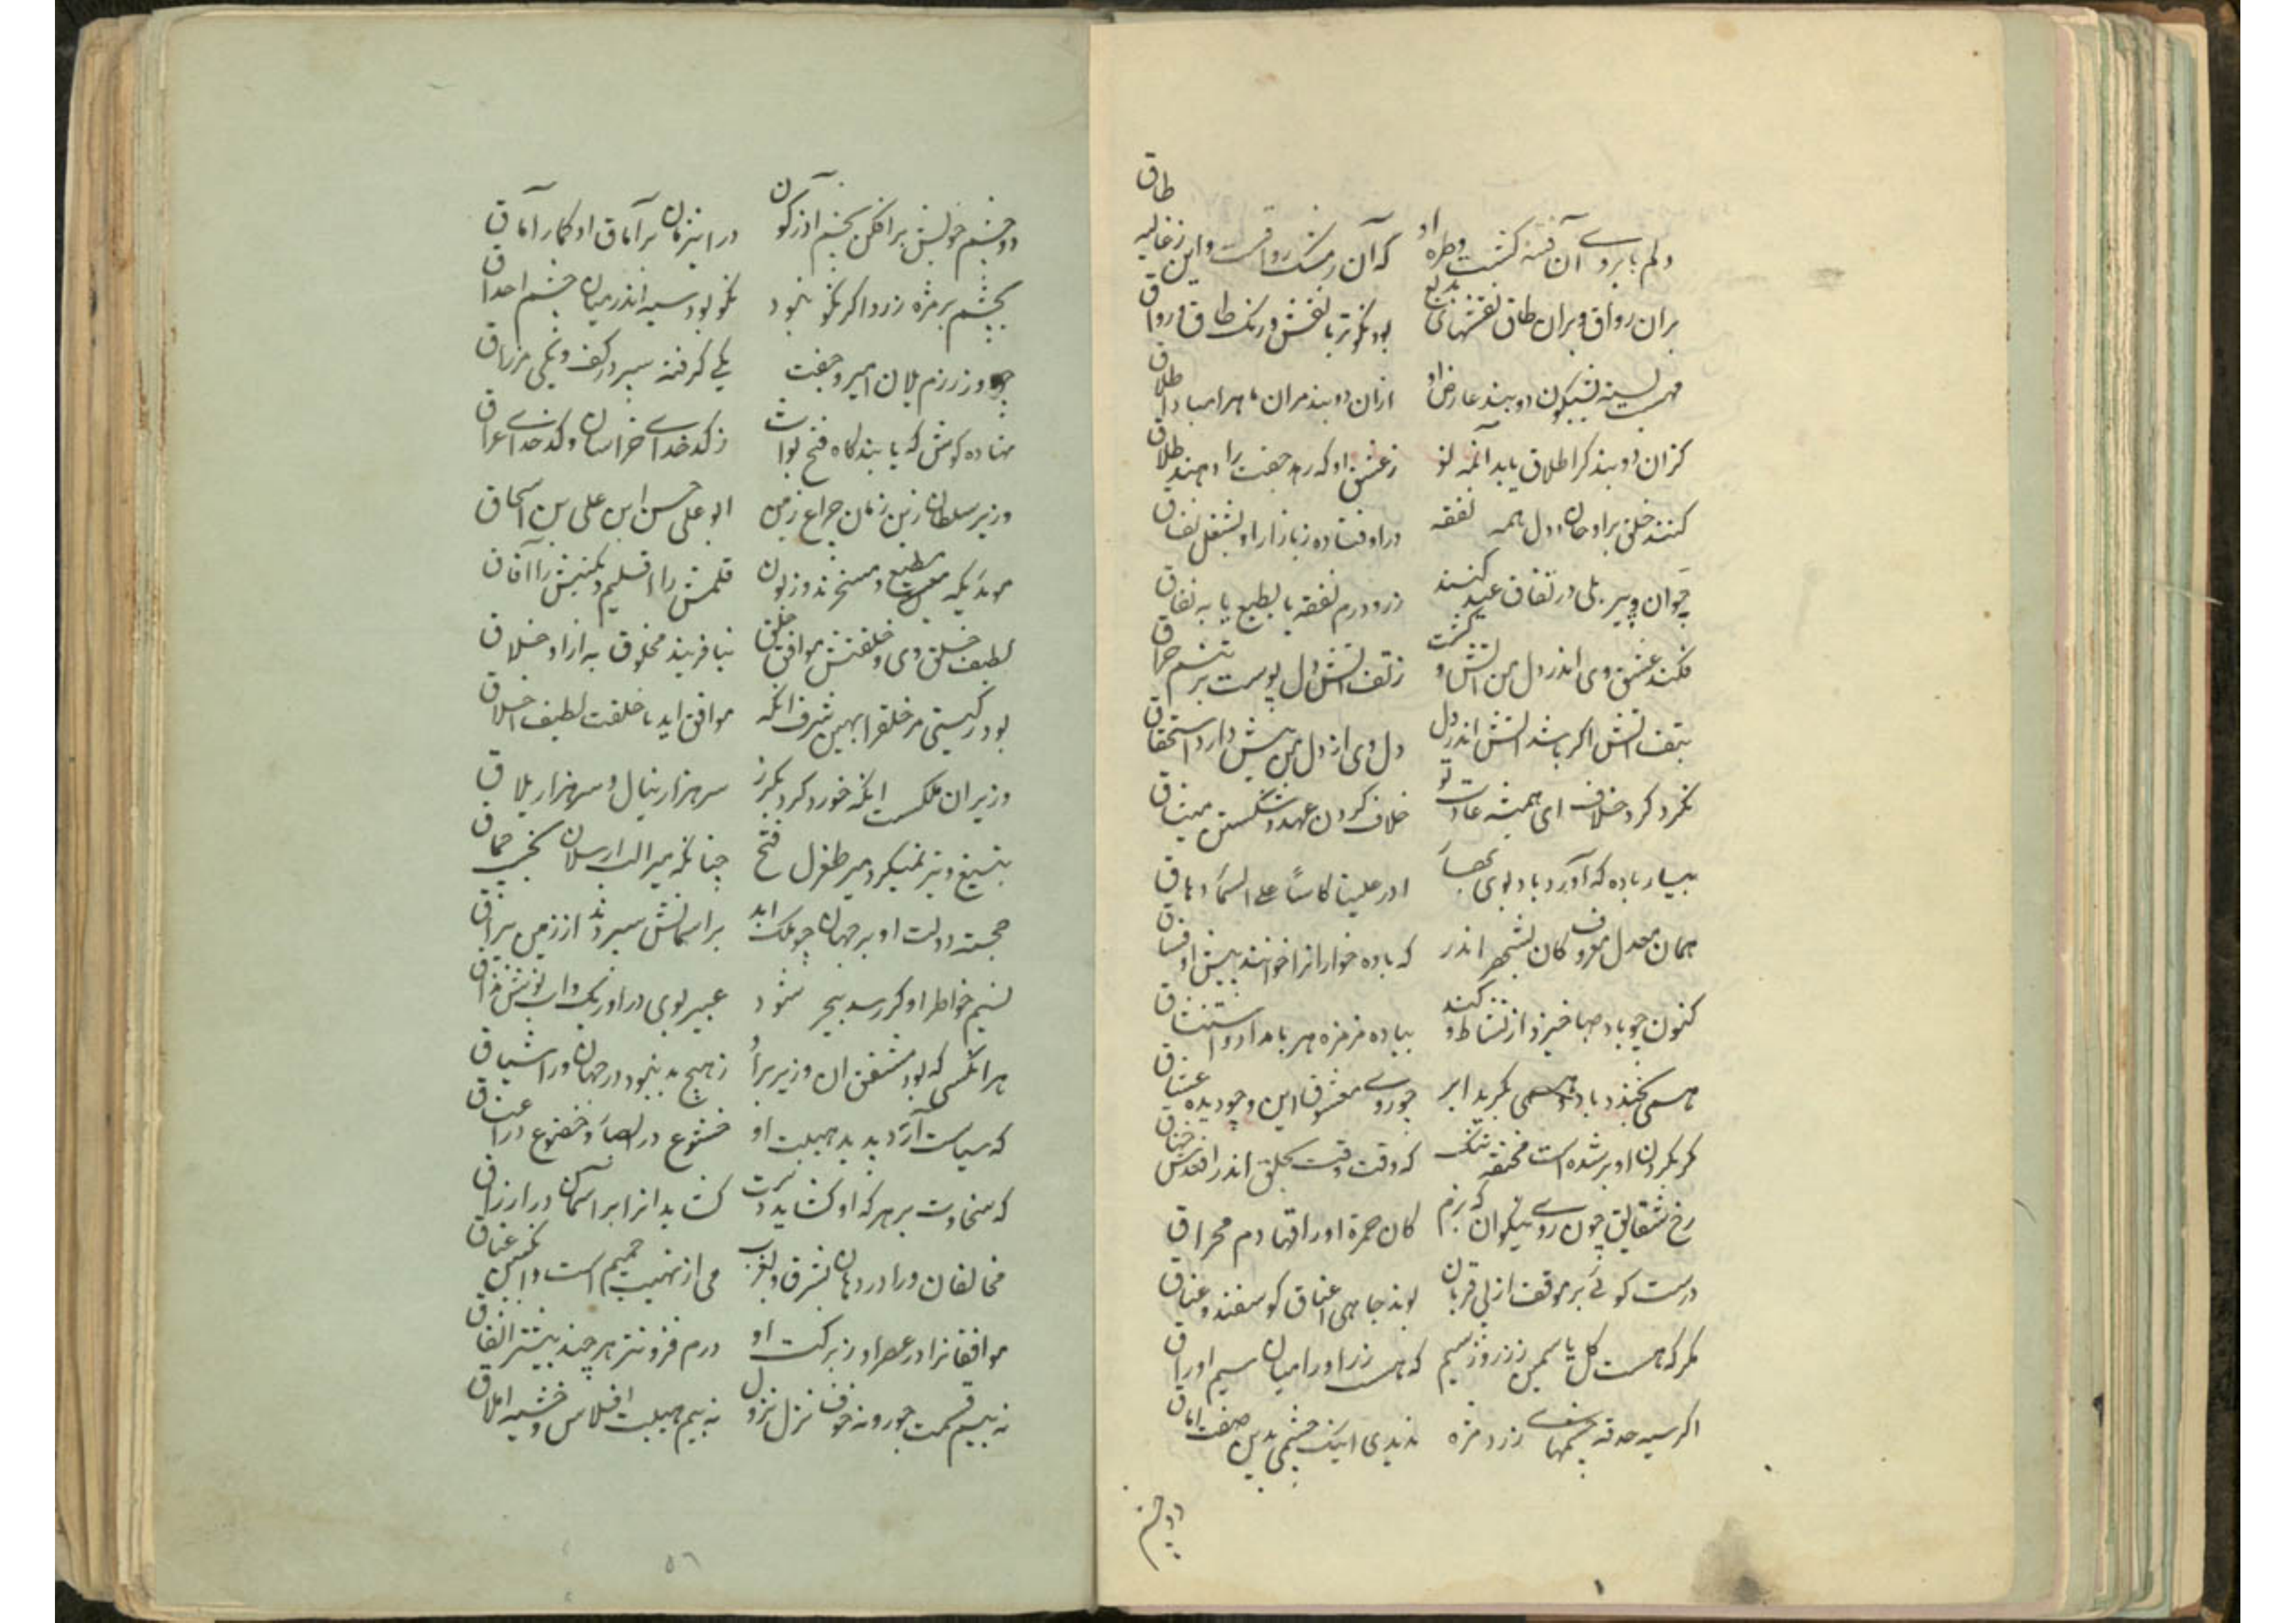 دلم بابروی آن فتنه گشت وطره او که آن ز مشک رواقست واین ز غالیه طاق
بران رواق وبران طاق نقشهای بدیع بود نکوتر با نقش ورنک طاق ورواق
بسته نیلکون دو بند عارض او ازان دو بند مران ماهرا مباد اطلاق
کزان دو بند کر اطلاق یابد آنمه نو ز عشق او که ومه جفت را دهند طلاق
کنند خلق براو جان ودل همه نفقه دراوفتاده ز بازار او بشغل نفاق
جوان وپیر بلی در نفاق عید کنند زر ودرم نفقه یا بطبع یا به نفاق
فکند عشق وی اندر دل من آتش و کشت ز تف آتش دل پوست بر تنم حراق
بتف آتش اکر باشد آتش اندر دل دل وی از دل من بیش دارد استحقاق
نکرد کرد خلاف ای همیشه عادت تو خلاف کردن عهد وشکستن میثاق
بیار باده که آورد باد بوی بهار ادر علینا کاسا علی السماء دهاق
همان معدل معروف کان بشهر اندر که باده خوارانرا خوانند پیش او فساق
کنون چو باد صبا خیزد از نشاط کند بباده مزمزه هر بامداد واستنشاق
همی بخندد باد وهمی بکرید ابر چو روی معشوق این وچو دیده عشاق
مکر بکردن او بر شده است مخنقه تنک که وقت وقت بحلق اندر افتدش خناق
رخ شقایق چون روی نیکوان که بزم کان حمرة اوراقها دم مهراق
درست کوئی بر موقف از پی قربان بوند جاهی اعناق کوسفند وعناق
مکر که هست کل یاسمین ز زر وز سیم که هست زر اورا میان سیم اوراق
اکر سیه حدقه چشمهای زرد مژه ندیدی اینک چشمی بدین صفت اماق
دو چشم
دو چشم خویش برافکن بچشم آذرکون در این زمان بر آماق او کمار آماق
بچشم بر مژه زرد اکر نکو نبود نکو بود سیه اندر میان چشم احداق
چو روز رزم یلان امیر وجفت یکی کرفته سپر در کف ویکی مزراق
نهاده کوش که یابند کاه فتح نواب ز کدخدای خراسان وکدخدای عراق
وزیر سلطان زین زمان چراغ زمن ابو علی حسن ابن علی بن اسحاق
موید یکه مطیع ومسخرند وزبون قلمش را اقلیم ونکینش را آفاق
لطیف خلق وی وخلقتش موافق خلق نیافرینند مخلوق به ازاو خلاق
بود بکیتی مر خلقرا بهین شرف آنکه موافق اید با خلقت لطیف اخلاق
وزیران ملکست آنکه خورد کرد بکرز سر هزار ینال وسر هزار یلاق
بتیغ وتیر نمیکرد میر طغرل فتح چنانکه میر الب ارسلان بخیر چماق
خجسته دولت او بر جهان چو ملک ابد بر اسمانش سپردند از زمین براق
نسیم خاطر او کر رسد ببحر شود عبیر بوی در او ریک واب نوشین مذاق
هر آنکسی که بود مشفق ان وزیر برا ز هیچ بد نبود در جهان ورا اشفاق
که سیاست آرد پدید هیبت او خشوع در ابصار وخضوع در اعناق
که سخاوت بر هر که او کشاید دست کشاید انرا بر اسمان در ارزاق
مخالفان ورا در دهان بشرق وبغرب می از نهیب حمیم است وانکبین غساق
موافقانرا در عصر او ز برکت او درم فزونتر هر چند بیشتر انفاق
نه بیم قسمت جور ونه خوف نزل نزول نه بیم هیبت افلاس وخشیه املاق
۵۶